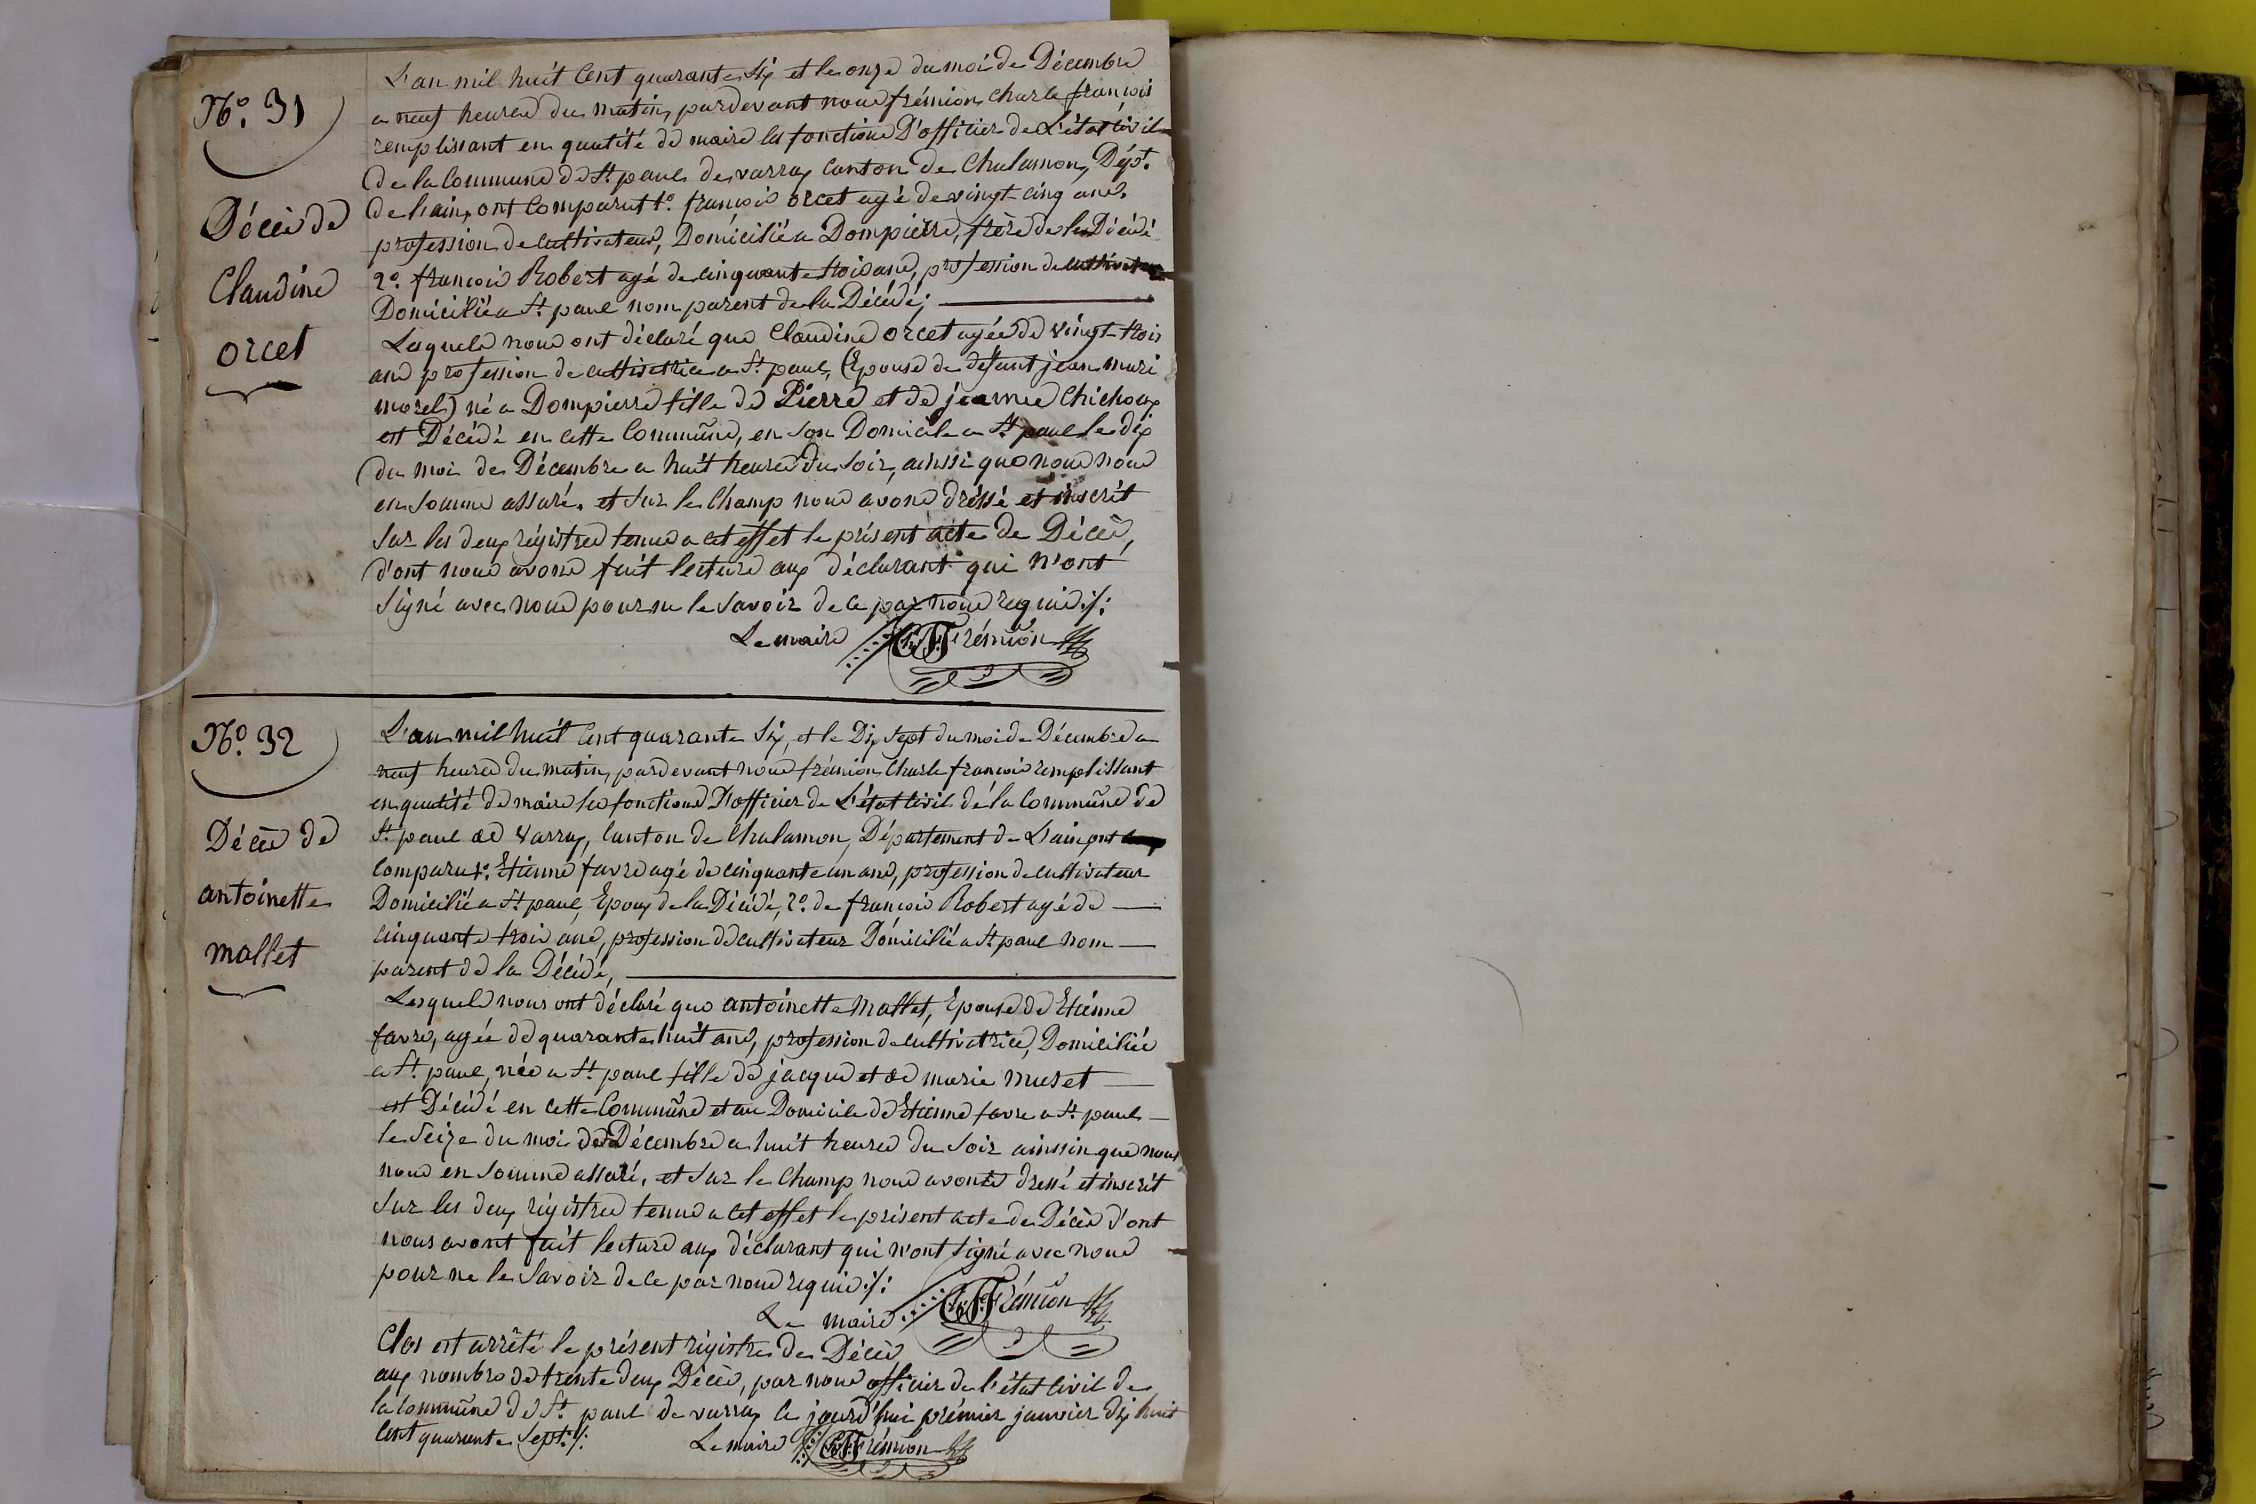 N.º 31
Décès de
Claudine
orcet
L'an mil huit Cent quarante Six et le onze du moi de Décembre
a neuf heures du matin, pardevant nous frémion charle françois
remplissant en qualité de maire les fonctions D'officier de L'état civil
de la Commune de St. paul de varrax canton de Chalamon, Dépt.
de l'ain, ont Comparut 1º. françois orcet agé de vingt-cinq ans,
profession de cultivateur, Domicilié a Dompierre, frère de la Décédé
2º. françois Robert agé de cinquante trois ans, profession de cultivateur
Domicilié a St. paul nom parent de la Décédé;
Lesquels nous ont déclaré que Claudine orcet agée de vingt-trois
ans profession de cultivatrice a St. paul, (Epouse de defunt jean mari
morel) né a Dompierre fille de Pierre et de jeanne Chichoux
est Décédé en cette Commune, en son Domicile a St. paul le dix
du moi de Décembre a huit heures du soir, ainssi que nous nous
en somme assuré. et sur le Champ nous avons dréssé et inscrit
sur les deux régistres tenus a cet effet le présent acte de Décès,
d'ont nous avons fait lecture aux déclarant qui n'ont
signé avec nous pour ne le savoir de ce par nous requis ./:
Le maire Ch. F. Frémion
N.º 32
Décès de
antoinette
mallet
L'an mil huit Cent quarante Six, et le Dix Sept du moi de Décembre a
neuf heures du matin, pardevant nous frémion Charle françois remplissant
en qualité de maire les fonctions D'officier de L'état Civil de la Commune de
St. paul de Varrax, Canton de Chalamon, Département de L'ain, ont
Comparu 1º. Etienne favre agé de cinquante un ans, profession de cultivateur
Domicilié a St. paul, Epoux de la Décédé, 2º. de françois Robert agé de
cinquante trois ans, profession de cultivateur Domicilié a St. paul nom
parent de la Décédé,
Lesquels nous ont déclaré que antoinette Mallet, Epouse de Etienne
favre, agée de quarante huit ans, profession de cultivatrice, Domiciliée
a St. paul, née a St. paul fille de jacque et de marie muset
est Décédé en cette Commune et au Domicile de Etienne favre a St. paul
le Seize du moi de Décembre a huit heures du soir ainssin que nous
nous en somme assuré, et sur le Champ nous avons dressé et inscrit
sur les deux régistres tenus a cet effet le présent acte de Décès d'ont
nous avont fait lecture aux déclarant qui n'ont signé avec nous
pour ne le savoir de ce par nous requis ./:
Le maire Ch. F. Frémion
Clos est arrêté le présent régistre de Décès
aux nombre de trente deux Décès, par nous officier de l'état civil de
la Commune de St. paul de varrax ce jourd'hui prémier janvier dix huit
Cent quarante Sept ./: Le maire Ch. F. Frémion